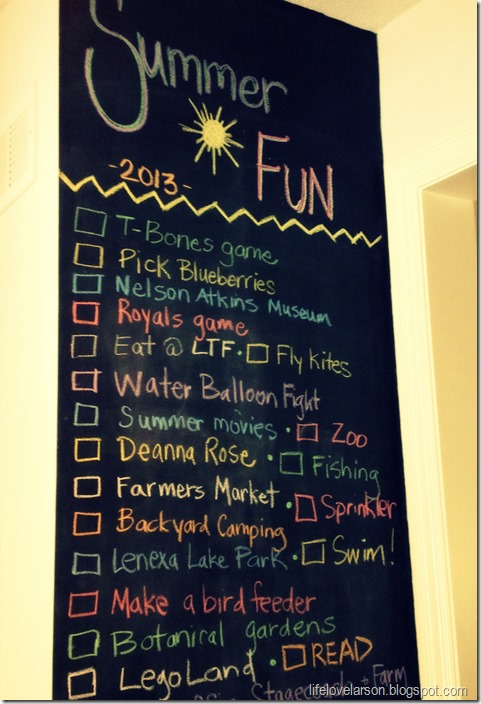 Summer
FUN
-2013-
T-Bones game
Pick Blueberries
Nelson Atkins Museum
Royals game
Eat @ LTF • Fly Kites
Water Balloon Fight
Summer movies • Zoo
Deanna Rose • Fishing
Farmers Market • Sprinkler
Backyard Camping
Lenexa Lake Park • Swim!
Make a bird feeder
Botanical gardens
Lego Land • READ
Stagecoach + Farm
lifelovelarson.blogspot.com